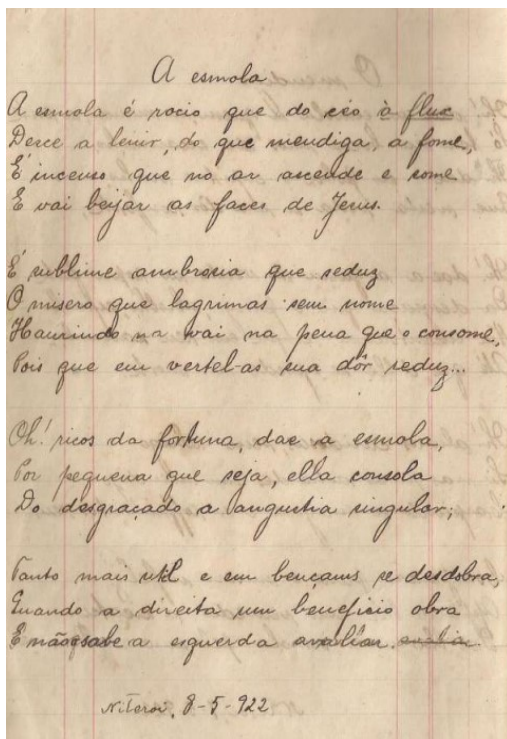 A esmola
A esmola é rocio que do céo à flux
Desce a lenir, do que mendiga, a fome,
É incenso que no ar ascende e some
E vai beijar as faces de Jesus.
É sublime ambrosia que seduz
O misero que lagrimas sem nome
Haurindo vai na pena que o consome,
Pois que em vertel-as sua dôr reduz...
Oh! ricos da fortuna, dae a esmola,
Por pequena que seja, ella consola
Do desgraçado a angustia singular;
Tanto mais util e em bençams se desdobra,
Quando a direita um beneficio obra
E não sabe a esquerda avaliar.
Niteroi, 8-5-922